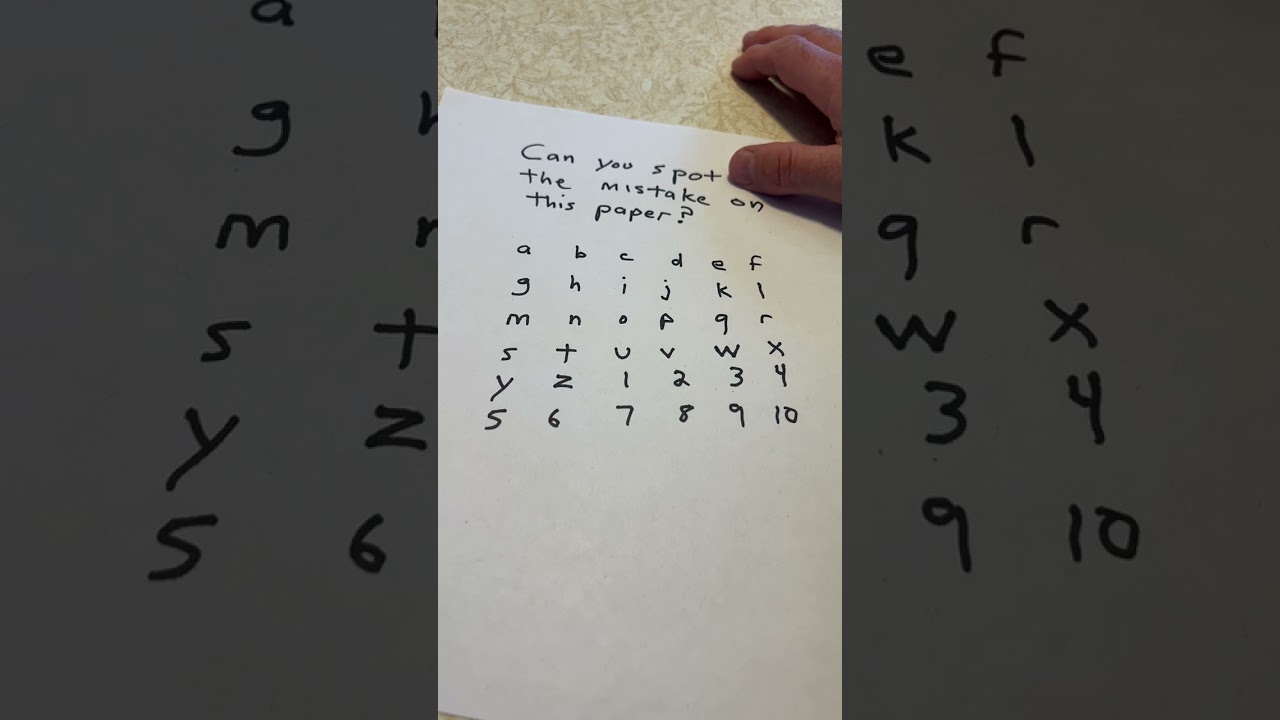 Can you spot
the mistake on
this paper?
a b c d e f
g h i j k l
m n o p q r
s t u v w x
y z 1 2 3 4
5 6 7 8 9 10